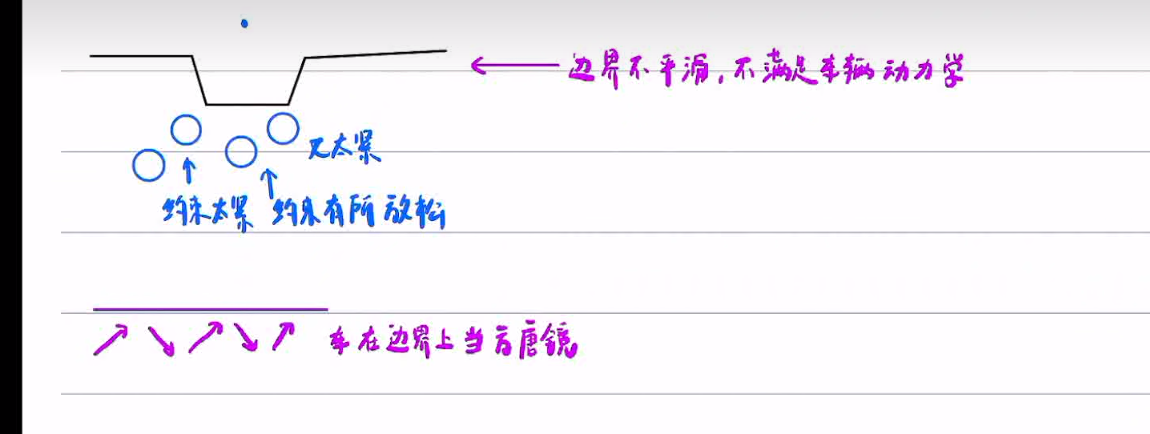 边界不平滑,不满足车辆动力学
又太紧
约束太紧 约束有所放松
车在边界上当方唐镜